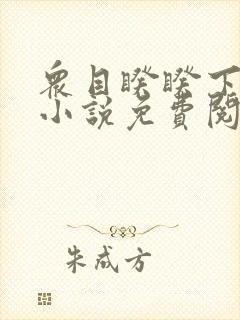 衆目睽睽下
小說免費閱
朱成方